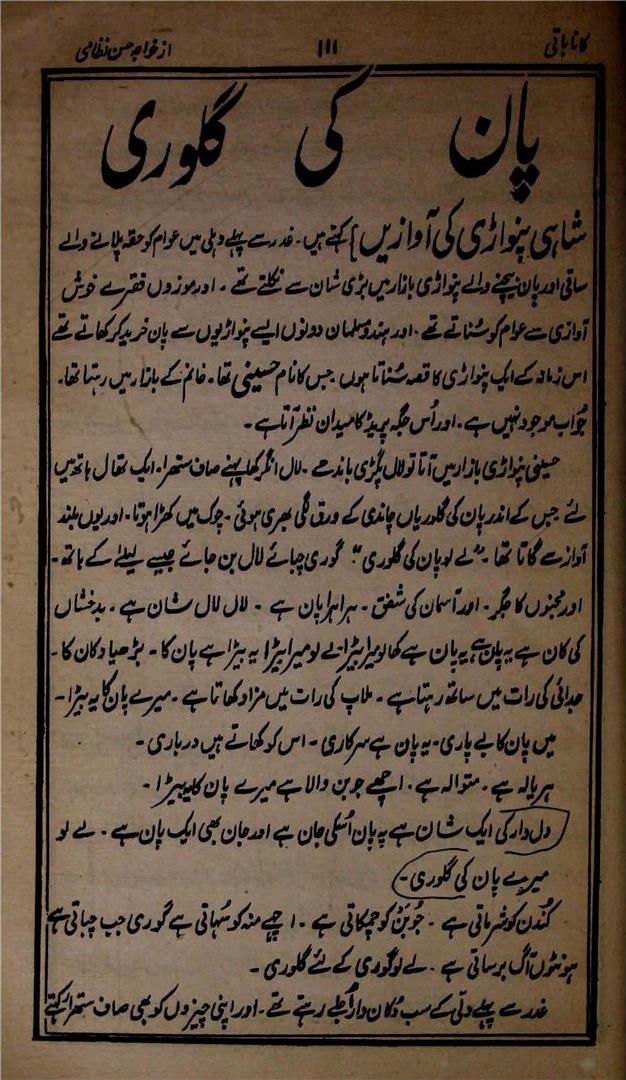 کانا باتی
۱۱۱
از خواجہ حسن نظامی
پان کی گلوری
شاہی پنواڑی کی آوازیں] کہتے ہیں۔ غدر سے پہلے دہلی میں عوام کو حقہ پلانے والے
ساقی اور پان بیچنے والے پنواڑی بازار میں بڑی شان سے نکلتے تھے۔ اور موزوں فقرے خوش
آوازی سے عوام کو سُناتے تھے۔ اور ہندو مسلمان دونوں ایسے پنواڑیوں سے پان خرید کر کھاتے تھے
اس زمانہ کے ایک پنواڑی کا قصہ سُناتا ہوں جس کا نام حسینی تھا۔ خانم کے بازار میں رہتا تھا۔
جو اب موجود نہیں ہے۔ اور اُس جگہ پریڈ کا میدان نظر آتا ہے۔
حسینی پنواڑی بازار میں آتا تو لال پگڑی باندھے۔ لال انگرکھا پہنے صاف ستھرا۔ ایک تھال ہاتھ میں
لئے جس کے اندر پان کی گلوریاں چاندی کے ورق لگی بھری ہوئی۔ چوک میں کھڑا ہوتا۔ اور یوں بلند
آواز سے گاتا تھا۔ "لے لو پان کی گلوری"۔ گوری چبائے لال بن جائے جیسے لیلےٰ کے ہاتھ۔
اور مجنوں کا جگر۔ اور آسمان کی شفق۔ ہرا ہرا پان ہے۔ لال لال شان ہے۔ بدخشاں
کی کان ہے یہ پان ہے یہ پان ہے کھا لو میرا بیڑا۔ لے لو میرا بیڑا یہ بیڑا ہے پان کا۔ بڑھیا دکان کا۔
جدائی کی رات میں ساتھ رہتا ہے۔ ملاپ کی رات میں مزا دکھاتا ہے۔ میرے پان کا یہ بیڑا۔
میں پان کا بے پاری۔ یہ پان ہے سرکاری۔ اس کو کھاتے ہیں درباری۔
ہریالہ ہے۔ متوالہ ہے۔ اچھے جوبن والا ہے میرے پان کا یہ بیڑا۔
دل دار کی ایک شان ہے یہ پان اُسکی جان ہے اور جان بھی ایک پان ہے۔ لے لو
میرے پان کی گلوری۔
کُندن کو شرماتی ہے۔ جُوبَن کو چمکاتی ہے۔ اچھے منہ کو سُہاتی ہے گوری جب چباتی ہے
ہونٹوں آگ برساتی ہے۔ لے لو گوری کے لئے گلوری۔
غدر سے پہلے دلّی کے سب دُکان دار اُجلے رہتے تھے۔ اور اپنی چیزوں کو بھی صاف ستھرا رکھتے